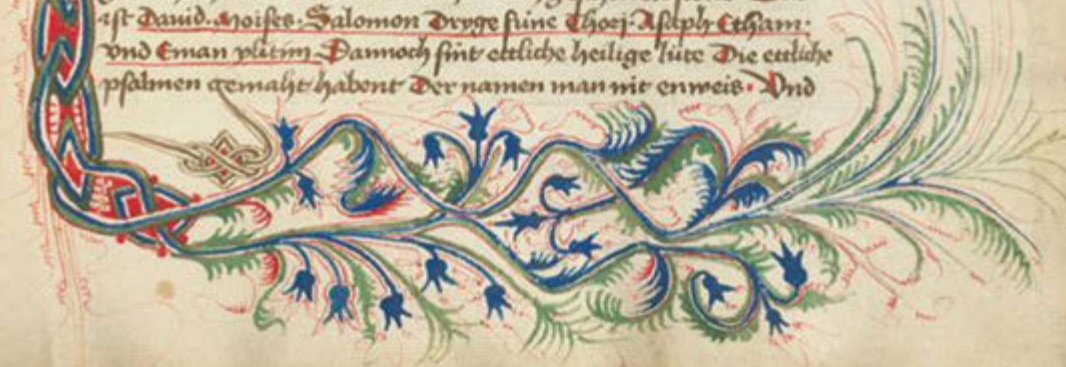 ist David. Moises. Salomon Dryge süne Chorj. Asaph Etham.
vnd Eman yditim. Dannoch sint ettliche heilige lüte Die ettliche
psalmen gemaht habent Der namen man nit enweis. Vnd